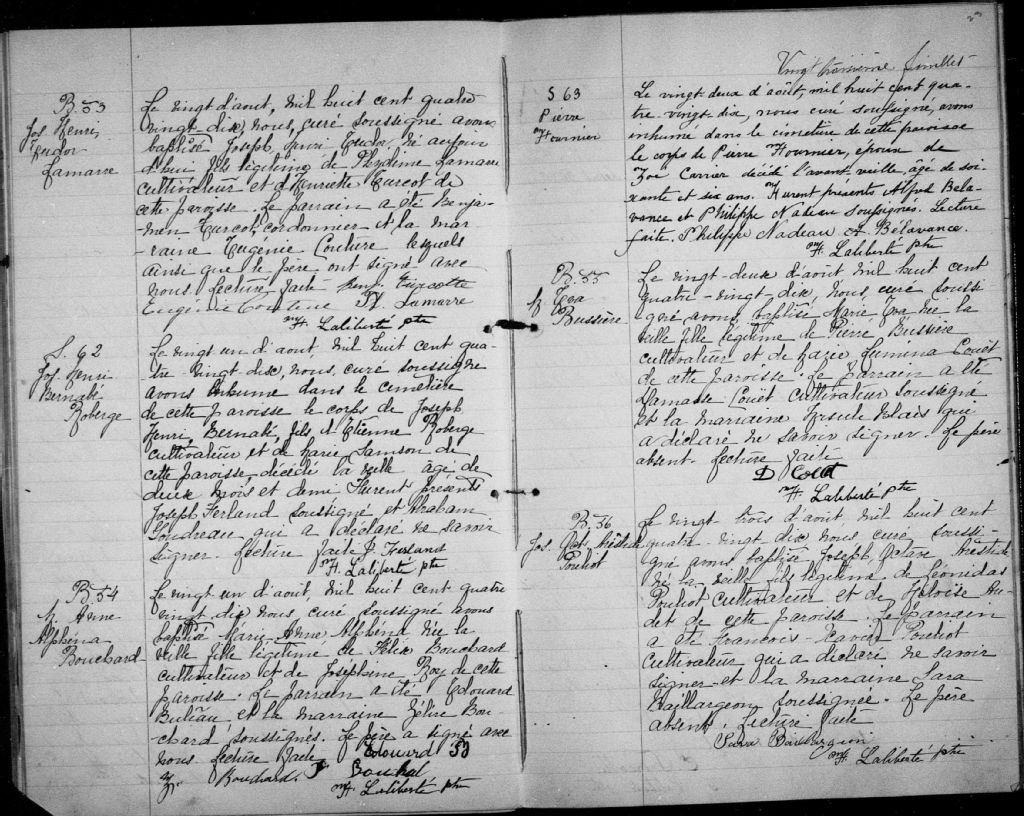 B 53
Jos Henri
Tudor
Lamarre
Le vingt d'aout, mil huit cent quatre
vingt-dix, nous, curé soussigné avons
baptisé Joseph Henri Tudor, né aujour
d'hui fils légitime de Lamarre
cultivateur et d'Henriette Turcot de
cette paroisse. Le parrain a été Benja-
men Turcot, cordonnier et la mar-
raine Eugénie Couture lesquels
ainsi que le père ont signé avec
nous. Lecture faite Turcotte
Eugénie Couture Lamarre
H. Laliberté ptre
S. 62
Jos Henri
Bernabé
Roberge
Le vingt un d'aout, mil huit cent qua-
tre vingt-dix, nous, curé soussigné
avons inhumé dans le cimetière
de cette paroisse le corps de Joseph
Henri, Bernabé, fils d'Etienne Roberge
cultivateur et de Marie Samson de
cette paroisse, décédé la veille âgé de
deux mois et demi Furent présents
Joseph Ferland soussigné et Abraham
qui a déclaré ne savoir
signer. Lecture faite J. Ferland
H. Laliberté ptre
B 54
M. Anne
Alphéna
Bouchard
Le vingt un d'aout, mil huit cent quatre
vingt dix nous, curé soussigné avons
baptisé Marie Anne Alphéna née la
veille fille légitime de Félix Bouchard
cultivateur et de Josephine Roy de cette
paroisse. Le parrain a été Edouard
Buteau et la marraine Zélire Bou-
chard soussignés. Le père a signé avec
nous Lecture faite Edouard
Bouchard. F Bouchard
H. Laliberté ptre
Vingt troisième feuillet
S 63
Pierre
Fournier
Le vingt-deux d'août, mil huit cent qua-
tre-vingt-dix, nous curé soussigné, avons
inhumé dans le cimetière de cette paroisse
le corps de Pierre Fournier, époux de
Zoé Carrier décédé l'avant-veille, âgé de soi-
xante et six ans. Furent présents Alfred Bela-
vance et Philippe Nadeau soussignés. Lecture
faite. Philippe Nadeau A. Belavance.
H. Laliberté ptre
B. 55
M Eva
Bussière
Le vingt-deux d'aout mil huit cent
quatre-vingt dix, nous, curé soussi
gné avons baptisé Marie Eva née la
veille fille légitime de Pierre Bussière
cultivateur et de Marie Lumina Couët
de cette paroisse. Le parrain a été
Damase Couët cultivateur soussigné
et la marraine Ursule Blais qui
a déclaré ne savoir signer. Le père
absent. Lecture faite
D Couët
H. Laliberté ptre
B. 56
Jos. Oct. Aristide
Pouliot
Le vingt trois d'aout, mil huit cent
quatre-vingt dix nous, curé soussi-
gné avons baptisé Joseph Octave Aristide
né la veille fils légitime de Léonidas
Pouliot cultivateur et de Heloise Au-
det de cette paroisse. Le parrain
a été Francois-Xavier Pouliot
cultivateur qui a déclaré ne savoir
signer et la marraine Sara
Baillargeon soussignée. Le père
absent. Lecture faite
Sara Baillargeon
H. Laliberté ptre